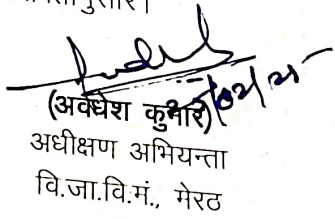 (अवधेश कुमार)
अधीक्षण अभियन्ता
वि.जा.वि.मं., मेरठ